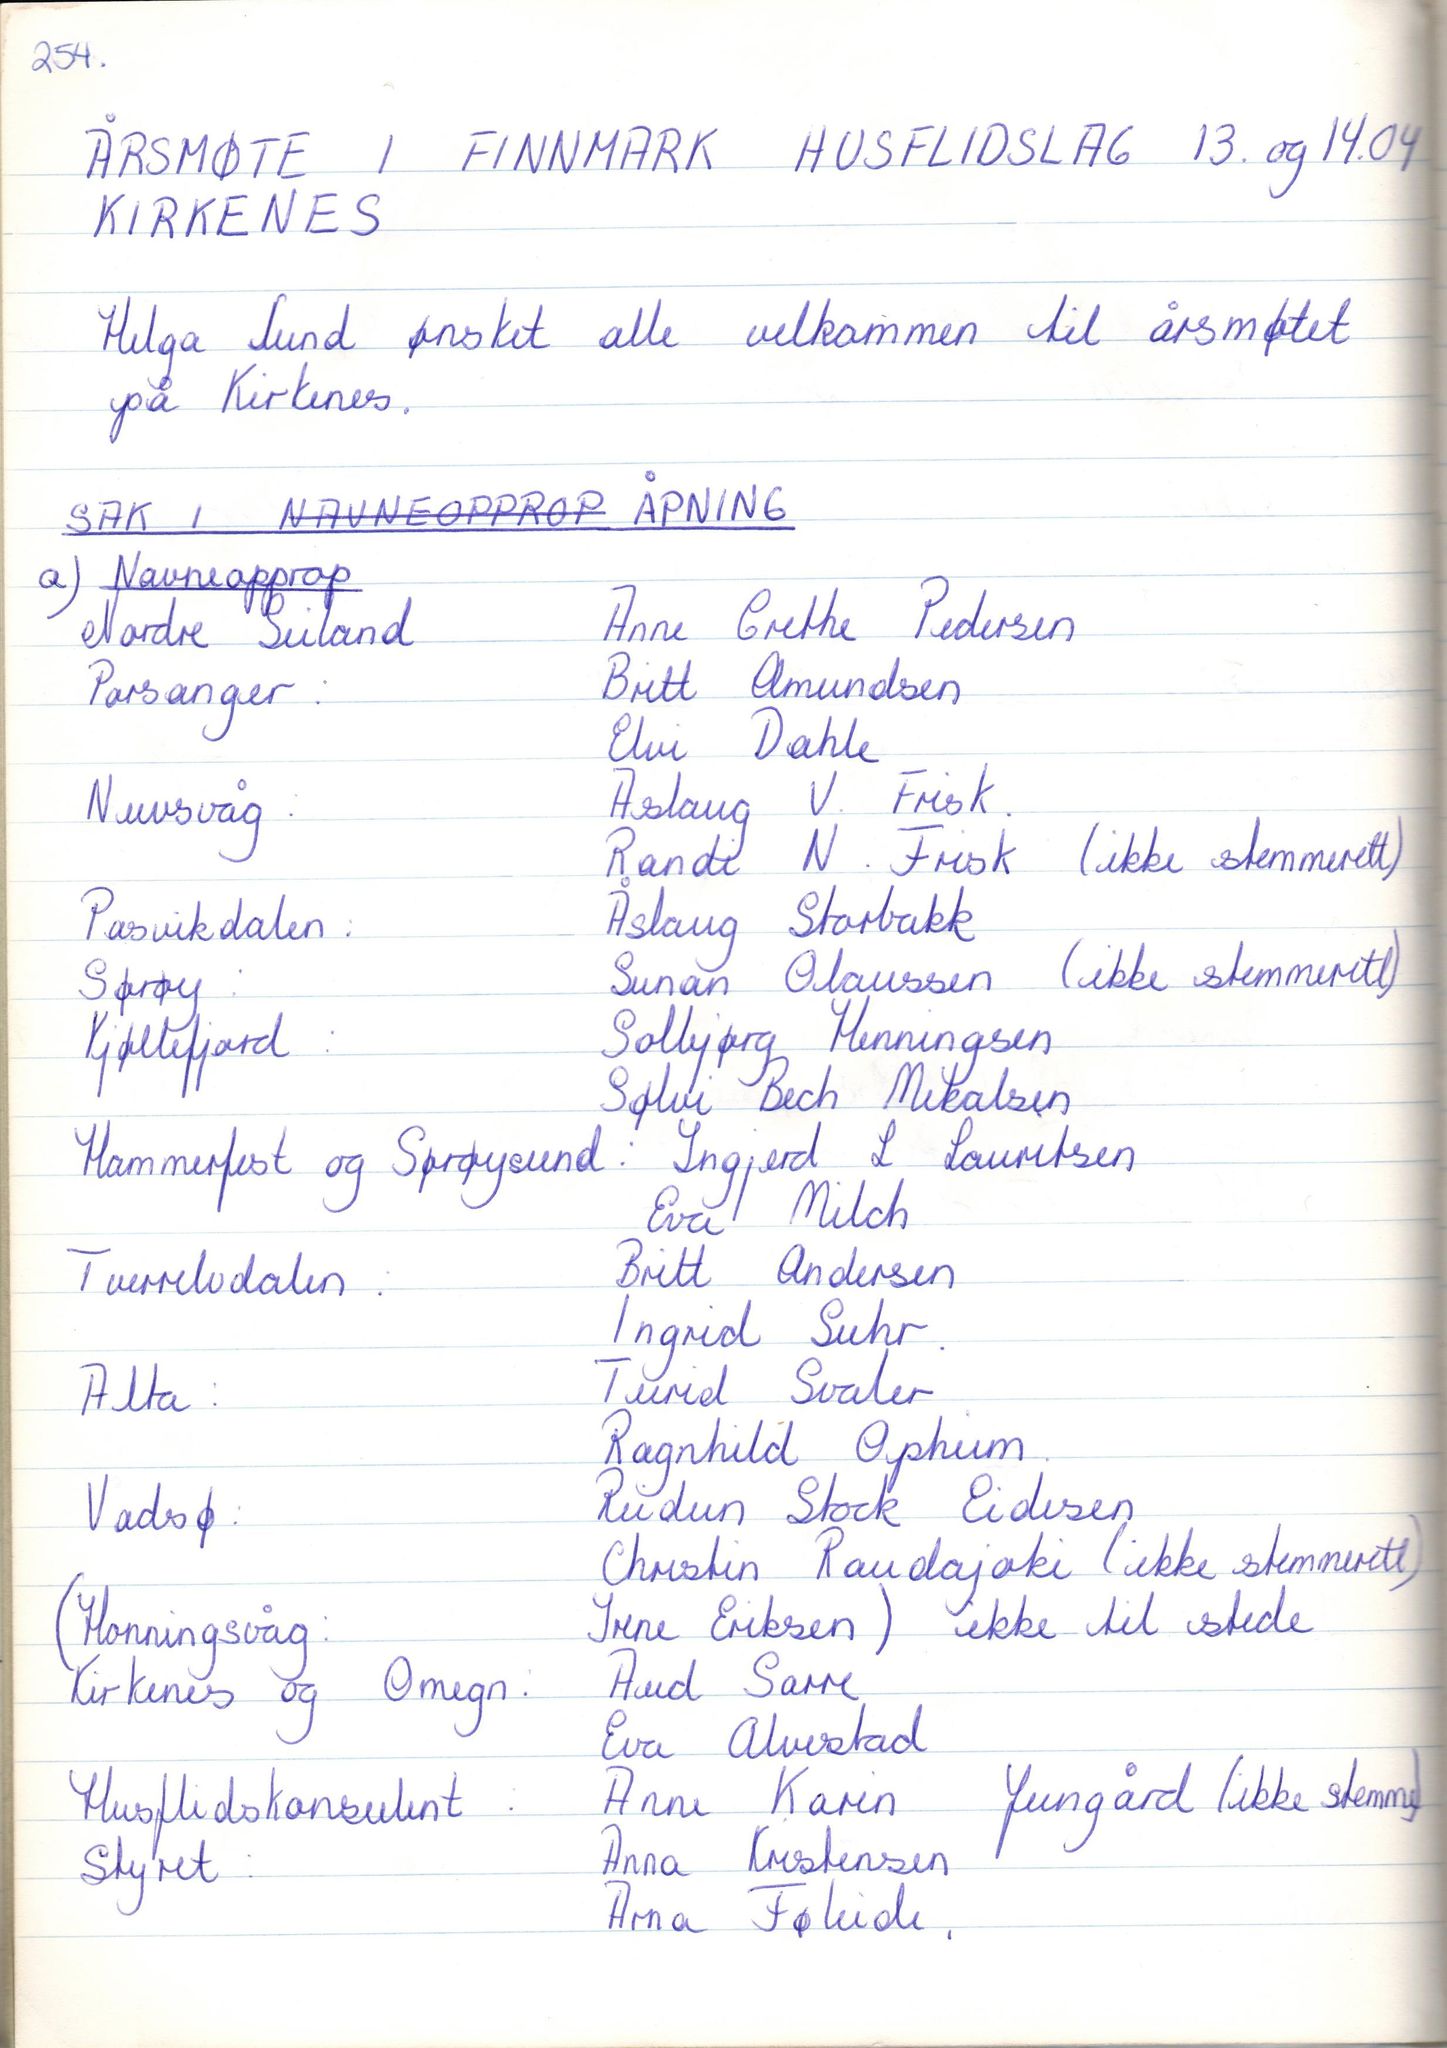 254.
ÅRSMØTE I FINNMARK HUSFLIDSLAG 13. og 14.04
KIRKENES
Helga Lund ønsket alle velkommen til årsmøtet
på Kirkenes.
SAK 1 NAVNEOPPROP ÅPNING
a) Navneopprop
Nordre Seiland Anne Grethe Pedersen
Porsanger: Britt Amundsen
Elvi Dahle
Nuvsvåg: Aslaug V. Frisk.
Randi N. Frisk (ikke stemmerett)
Pasvikdalen: Åslaug Storbakk
Sørøy: Sunan Olaussen (ikke stemmerett)
Kjøllefjord: Solbjørg Henningsen
Sølvi Bech Mikalsen
Hammerfest og Sørøysund: Ingjerd L Lauritsen
Eva Milch
Tverrelvdalen: Britt Andersen
Ingrid Suhr.
Alta: Turid Svaler
Ragnhild Ophum.
Vadsø: Reidun Stock Eidesen
Christin Raudajoki (ikke stemmerett)
(Honningsvåg: Irene Eriksen) ikke til stede
Kirkenes og Omegn: Aud Sarre
Eva Alvestad
Husflidskonsulent: Anne Karin Jungård (ikke stemme)
Styret: Anna Kristensen
Arna Føleide.